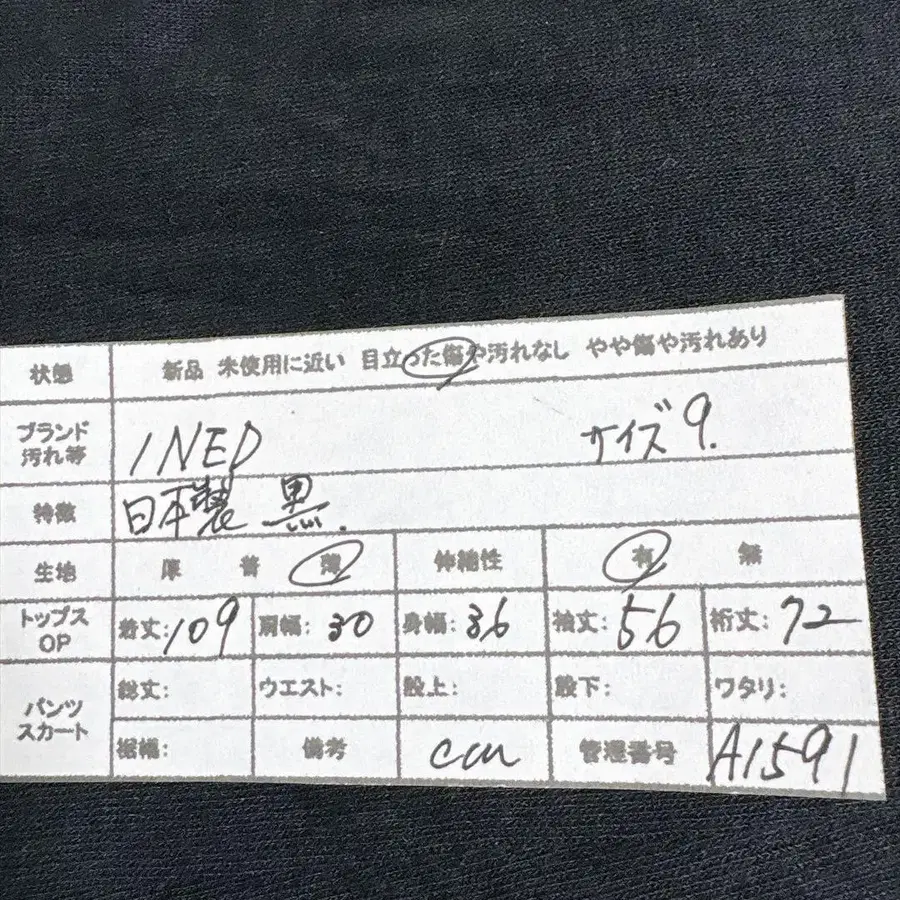 状態 新品 未使用に近い 目立った傷や汚れなし やや傷や汚れあり
ブランド
汚れ等 INED サイズ 9.
特徴 日本製 黒.
生地 厚 普 薄 伸縮性 有 無
トップス
OP 着丈:109 肩幅:30 身幅:36 袖丈:56 裄丈:72
パンツ
スカート 総丈: ウエスト: 股上: 股下: ワタリ:
裾幅: 備考 cm 管理番号 A1591